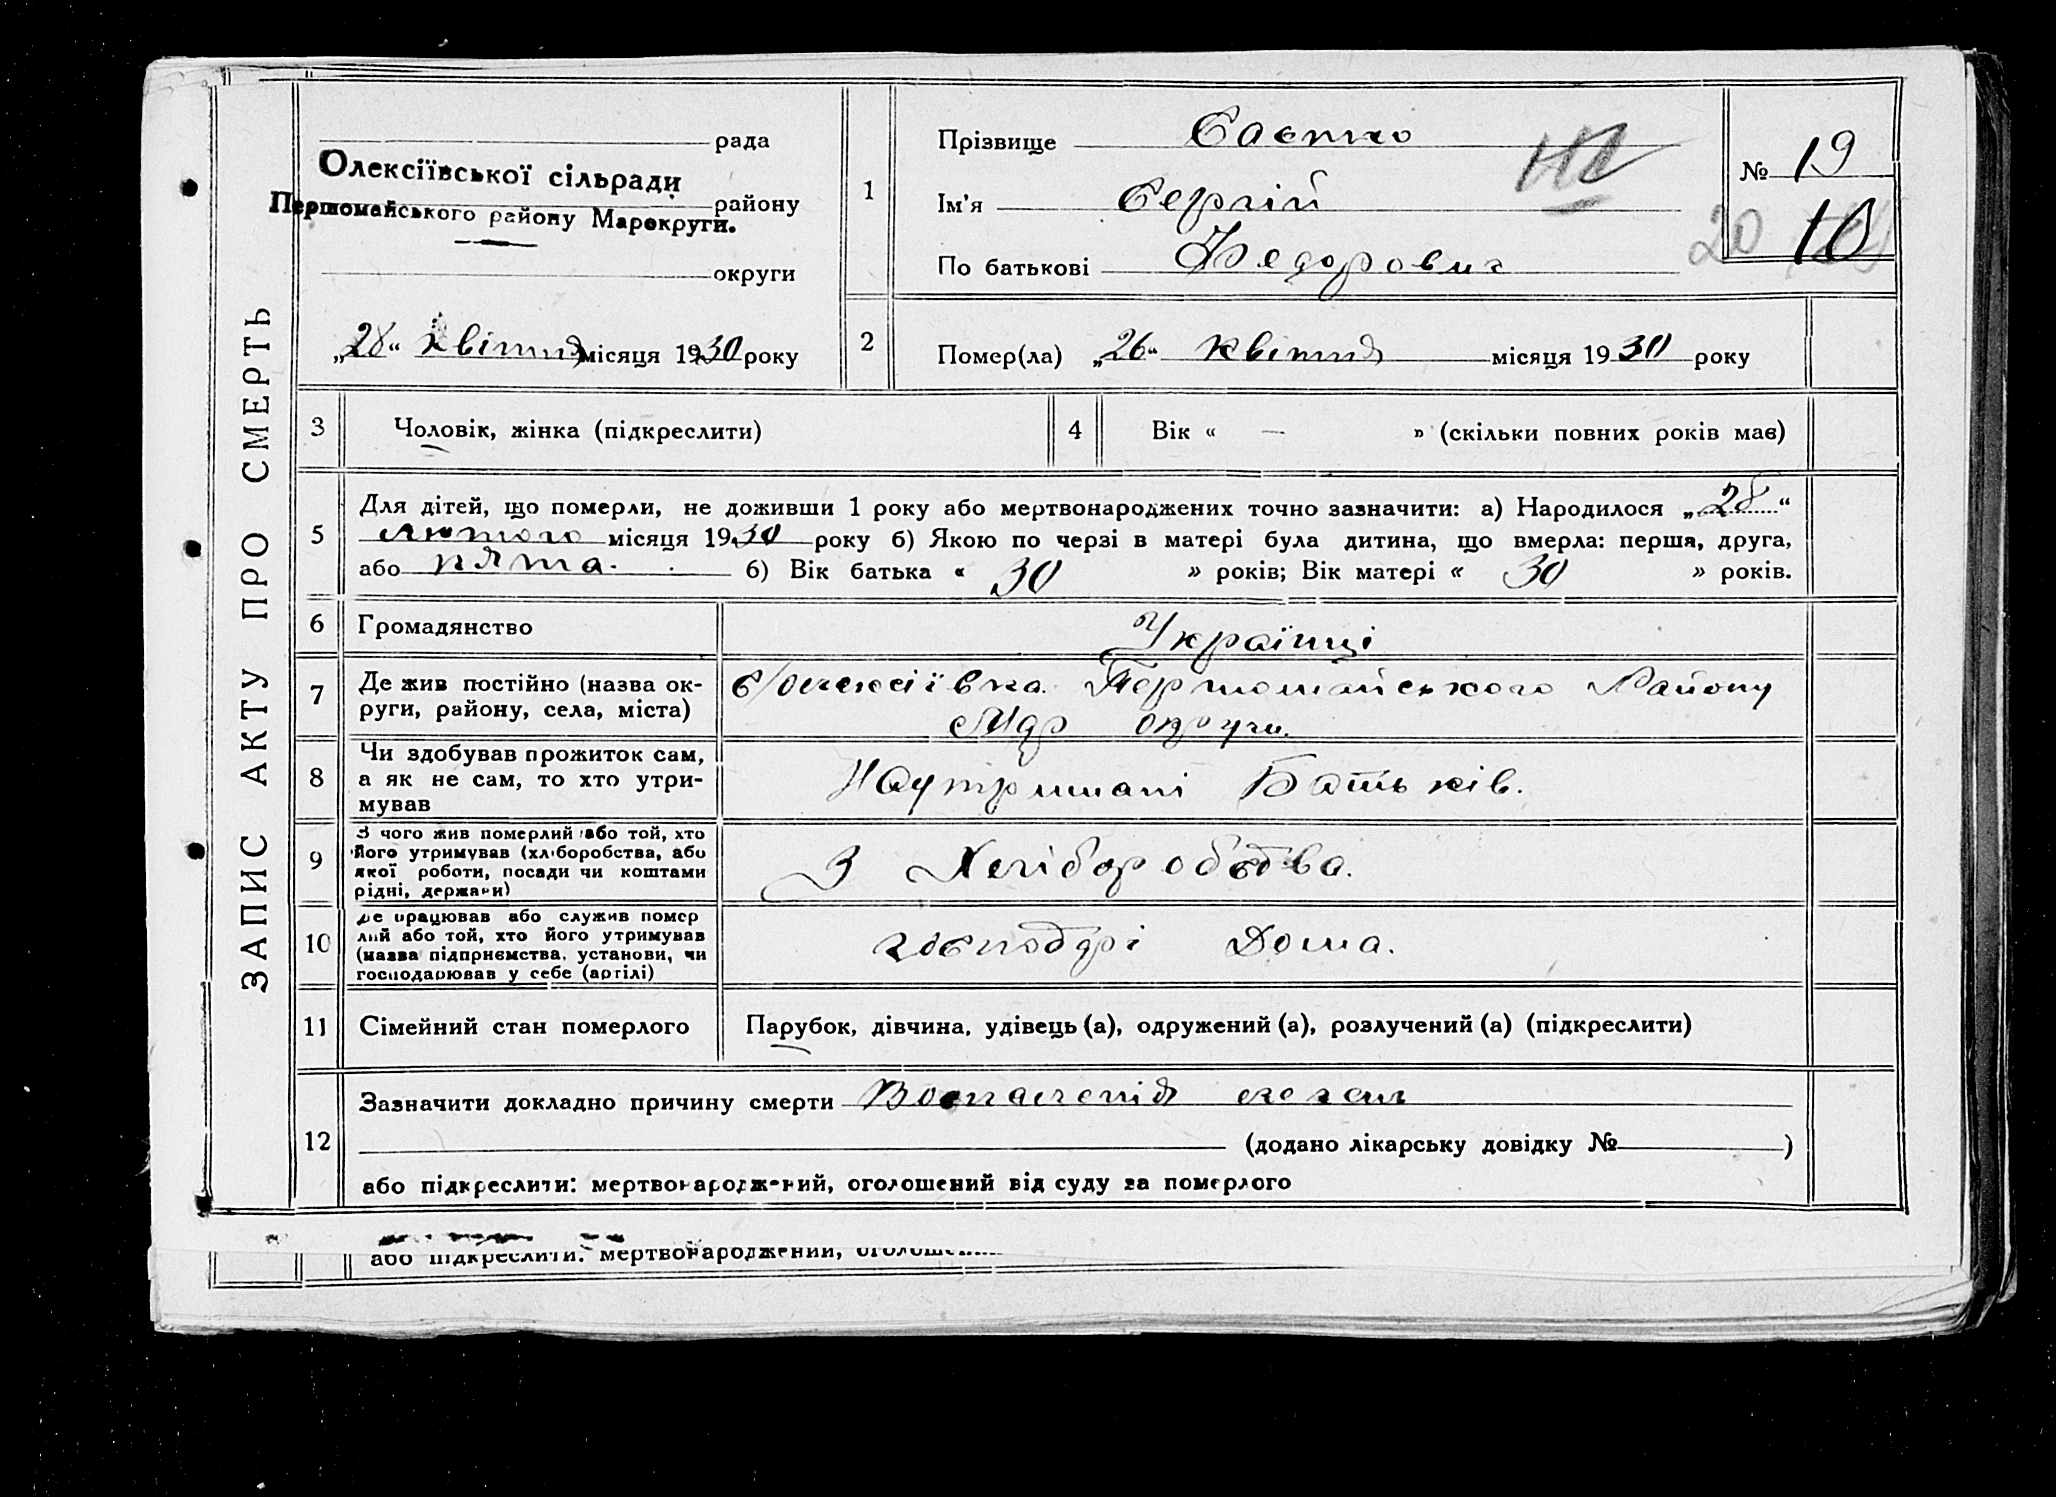 ЗАПИС АКТУ ПРО СМЕРТЬ
рада
Олексіївської сільради
району
Першомайського району Марокруги.
округи
„28“ квітня місяця 1930 року
1
Прізвище
Ім'я Сергій
По батькові Федорович
№ 19
20 10
2
Помер(ла) „26“ квітня місяця 1930 року
3 Чоловік, жінка (підкреслити)
4 Вік « — » (скільки повних років має)
5 Для дітей, що померли, не доживши 1 року або мертвонароджених точно зазначити: а) Народилося „28“
лютого місяця 1930 року б) Якою по черзі в матері була дитина, що вмерла: перша, друга,
або пята. б) Вік батька « 30 » років; Вік матері « 30 » років.
6 Громадянство Українці
7 Де жив постійно (назва ок-
руги, району, села, міста)
с/Олексіївка Першомайського Району
Мар округи.
8 Чи здобував прожиток сам,
а як не сам, то хто утри-
мував
Наутримані Батьків.
9 З чого жив померлий або той, хто
його утримував (хліборобства, або
якої роботи, посади чи коштами
рідні, держави)
З Хліборобства.
10 Де працював або служив помер
лий або той, хто його утримував
(назва підприємства, установи, чи
господарював у себе (артілі)
господарі Дома.
11 Сімейний стан померлого Парубок, дівчина, удівець (а), одружений (а), розлучений (а) (підкреслити)
12 Зазначити докладно причину смерти Воспаленія
(додано лікарську довідку № )
або підкреслити: мертвонароджений, оголошений від суду за померлого
або підкреслити: мертвонароджений,